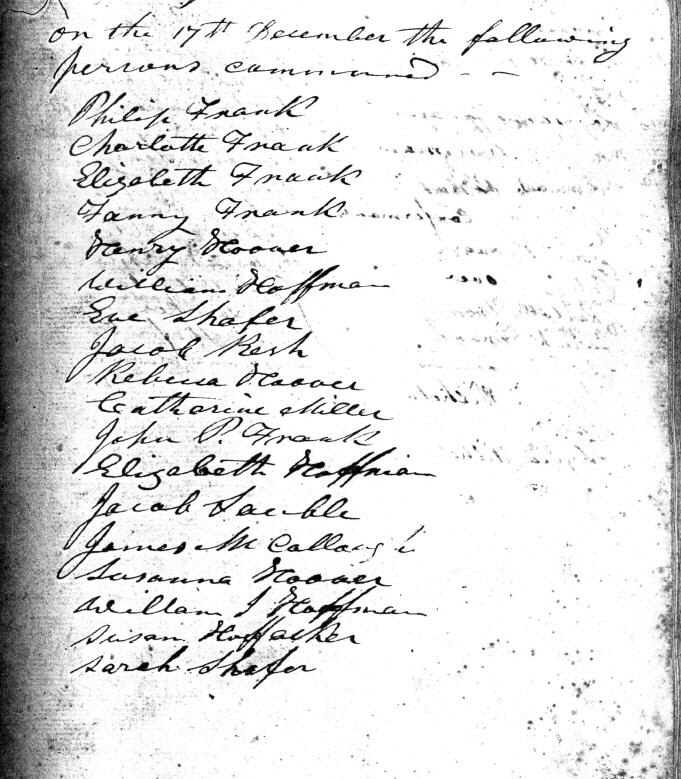 on the 17th December the following
persons communed - -
Philip Frank
Charlotte Frank
Elizabeth Frank
Fanny Frank
Henry Hoover
William Hoffman
Eve Shafer
Jacob Kesh
Rebecca Hoover
Catharine Miller
John P. Frank
Elizabeth Hoffman
Jacob Sauble
James McCollough
Susanna Hoover
William J Hoffman
Susan Hoffacker
Sarah Shafer